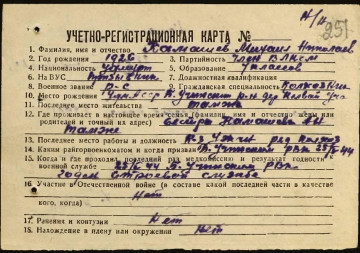 н/п
251
УЧЕТНО-РЕГИСТРАЦИОННАЯ КАРТА №
1. Фамилия, имя и отчество Камашев Михаил Николаев
2. Год рождения 1926 3. Партийность Член ВЛКСМ
4. Национальность удмурт 5. Образование 4 класса
6. На ВУС 7. Должностная квалификация
8. Военное звание 9. Гражданская специальность Колхозник
10. Место рождения Удм. АССР Б. Учинский р-н дер.
11. Последнее место жительства также
12. Где проживает в настоящее время семья (фамилия, имя и отчество жены или
родителей и точный их адрес)
также
13. Последнее место работы и должность к-з
14. Каким райгорвоенкоматом и когда призван Б. Учинский РВК 25/V 44
15. Когда и где проходил последний раз медкомиссию и результат годности к
военной службе 25/V 44 Б. Учинский РВК
годен строевой службе
16. Участие в Отечественной войне (в составе какой последней части в качестве
кого, когда) Нет
17. Ранения и контузии Нет
18. Нахождение в плену или окружении Нет